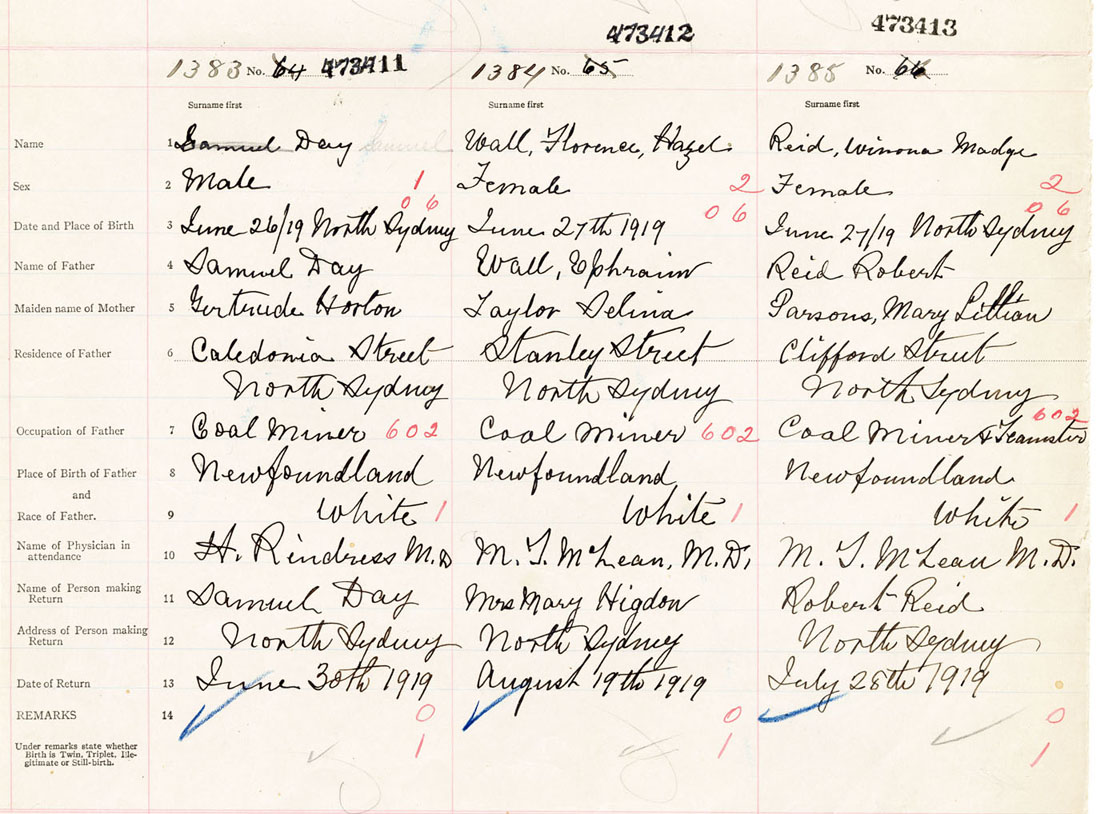 473412 473413
1383 No. 64 473411 1384 No. 65 1385 No. 66
Surname first Surname first Surname first
Name 1 Samuel Day Samuel Wall, Florence, Hazel Reid, Winona Madge
Sex 2 Male 1 Female 2 Female 2
06 06 06
Date and Place of Birth 3 June 26/19 North Sydney June 27th 1919 June 27/19 North Sydney
Name of Father 4 Samuel Day Wall, Ephraim Reid Robert
Maiden name of Mother 5 Gertrude Horton Taylor Selina Parsons, Mary Lillian
Residence of Father 6 Caledonia Street Stanley Street Clifford Street
North Sydney North Sydney North Sydney
Occupation of Father 7 Coal Miner 602 Coal Miner 602 Coal Miner & Teamster 602
Place of Birth of Father 8 Newfoundland Newfoundland Newfoundland
and
Race of Father. 9 White 1 White 1 White 1
Name of Physician in
attendance 10 H. Rindress M.D M. T. McLean, M.D. M. T. McLean M.D.
Name of Person making
Return 11 Samuel Day Mrs Mary Higdon Robert Reid
Address of Person making
Return 12 North Sydney North Sydney North Sydney
Date of Return 13 June 30th 1919 August 19th 1919 July 28th 1919
REMARKS 14 0 0 0
Under remarks state whether
Birth is Twin, Triplet, Ille-
gitimate or Still-birth. 1 1 1